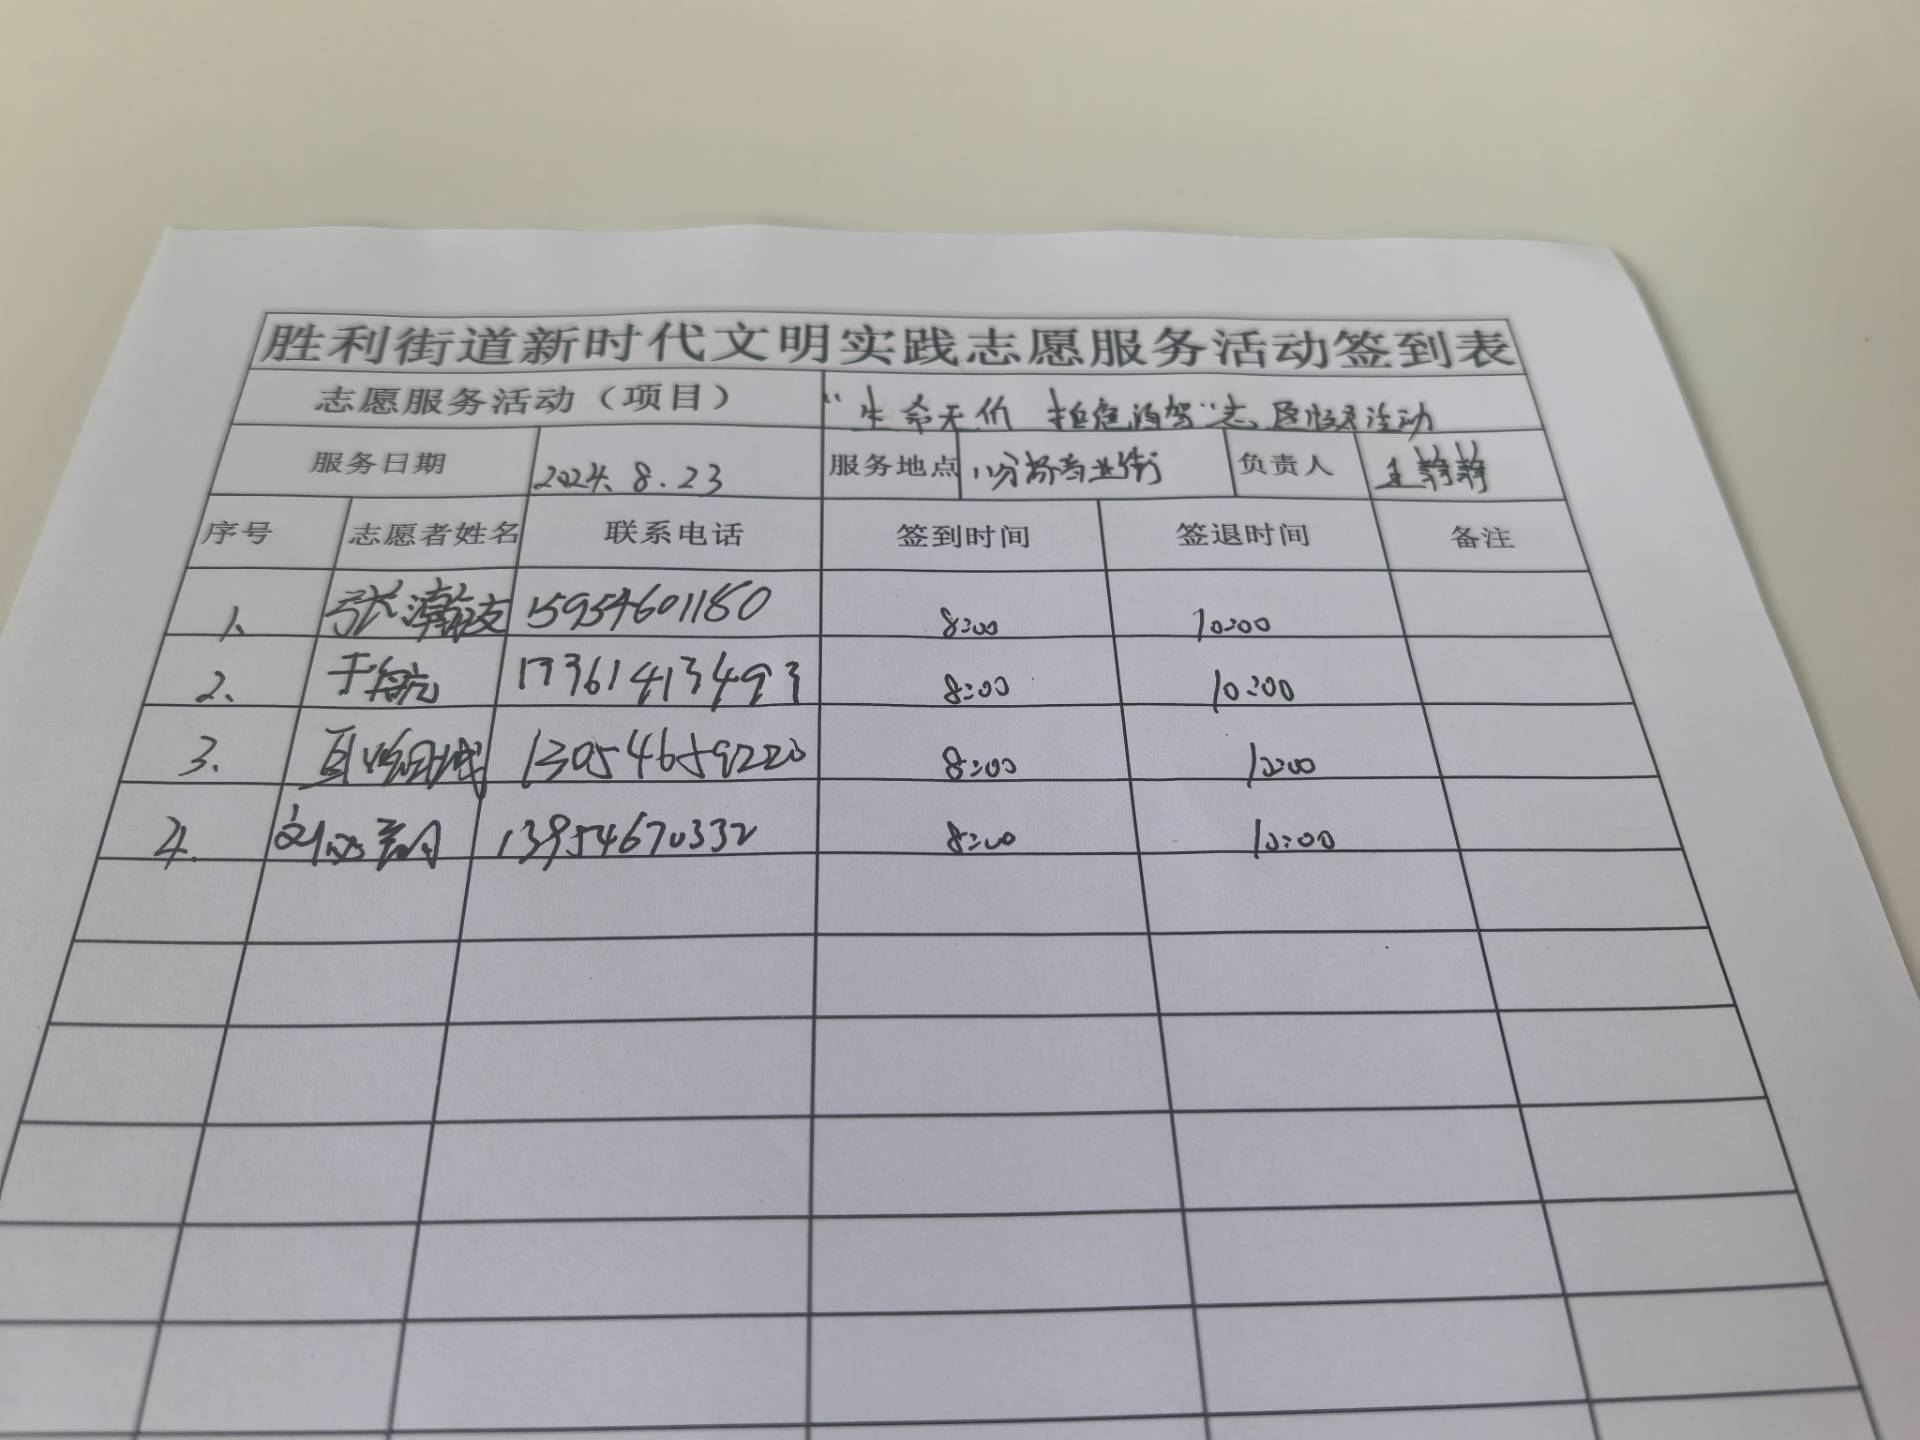 胜利街道新时代文明实践志愿服务活动签到表
志愿服务活动（项目） “生命无价 拒绝酒驾”志愿服务活动
服务日期 2024.8.23 服务地点 商业街 负责人 王静静
序号 志愿者姓名 联系电话 签到时间 签退时间 备注
1、 张瀚友 15954601180 8:00 10:00
2、 于航 17361413493 8:00 10:00
3. 13054659220 8:00 10:00
4. 刘 13954670332 8:00 10:00